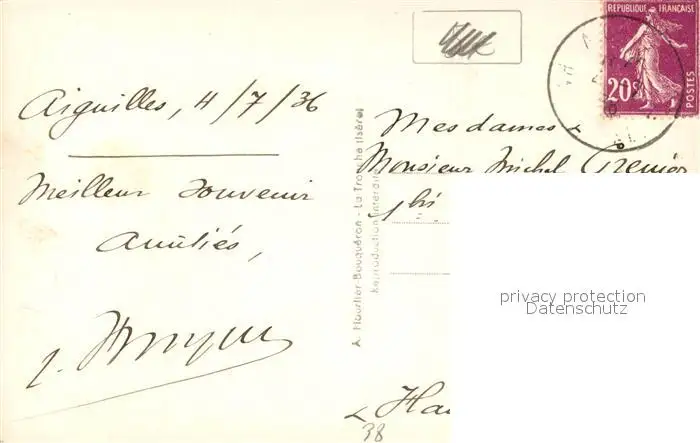 Aiguilles, 4/7/36
Meilleur Souvenir
Amitiés,
A. Mourlier-Bouquéron - La Tronche (Isère)
Reproduction interdite
RÉPUBLIQUE FRANÇAISE
20c
POSTES
Mesdames &
Monsieur Michel Grenier
1 bis
privacy protection
Datenschutz
38